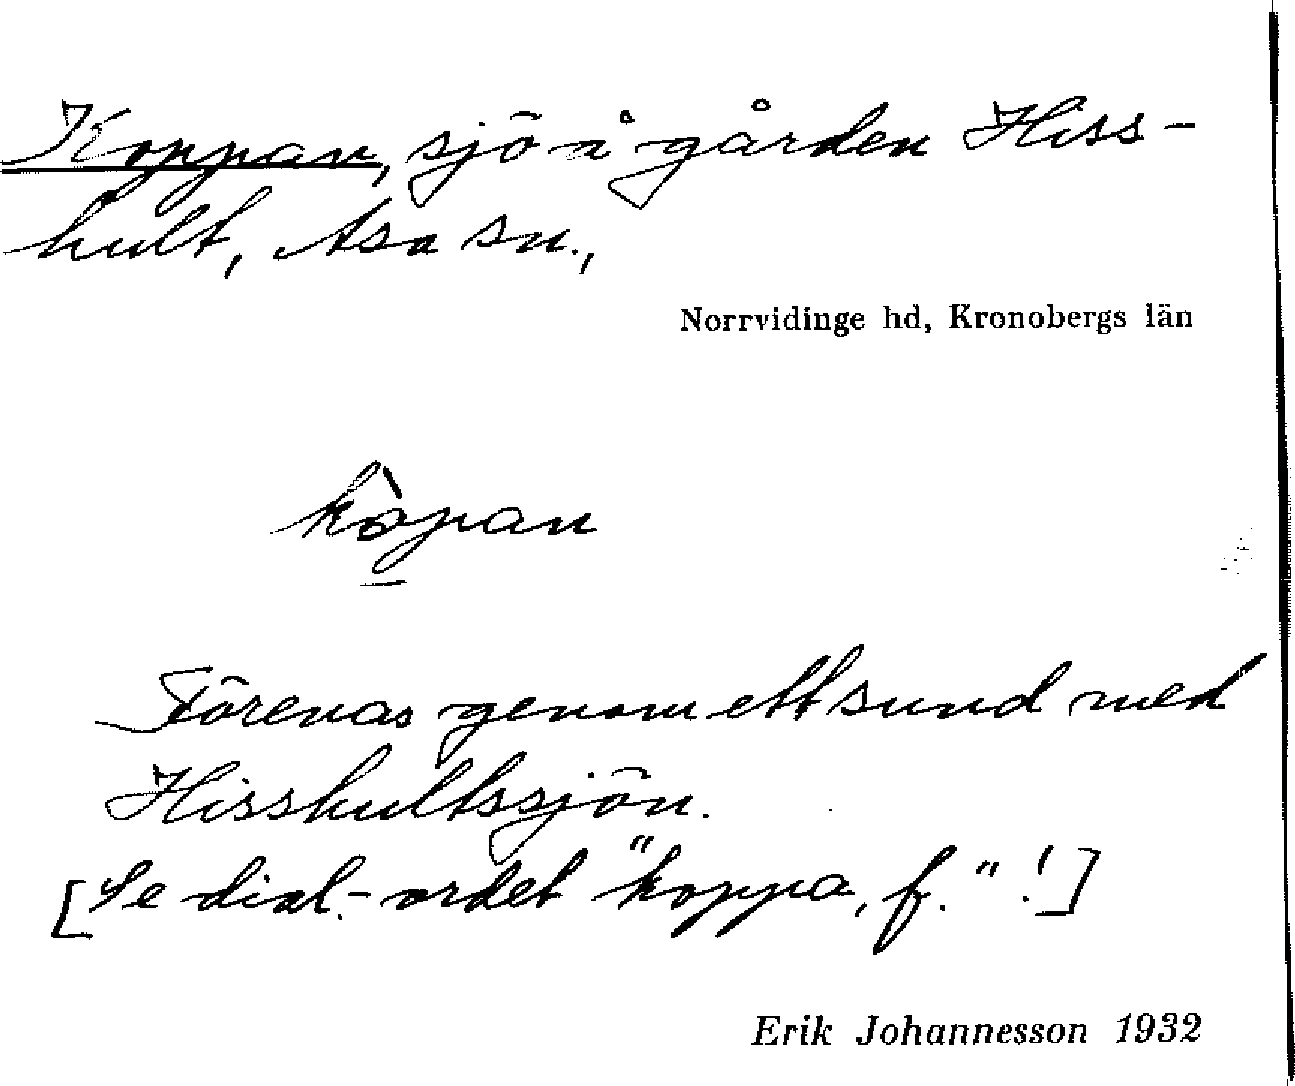 Koppan, sjö å gården Hiss-
hult, Asa sn.,
Norrvidinge hd, Kronobergs län
kòpan
Förenas genom ett sund med
Hisshultssjön.
[Se dial.-ordet "koppa, f." !]
Erik Johannesson 1932